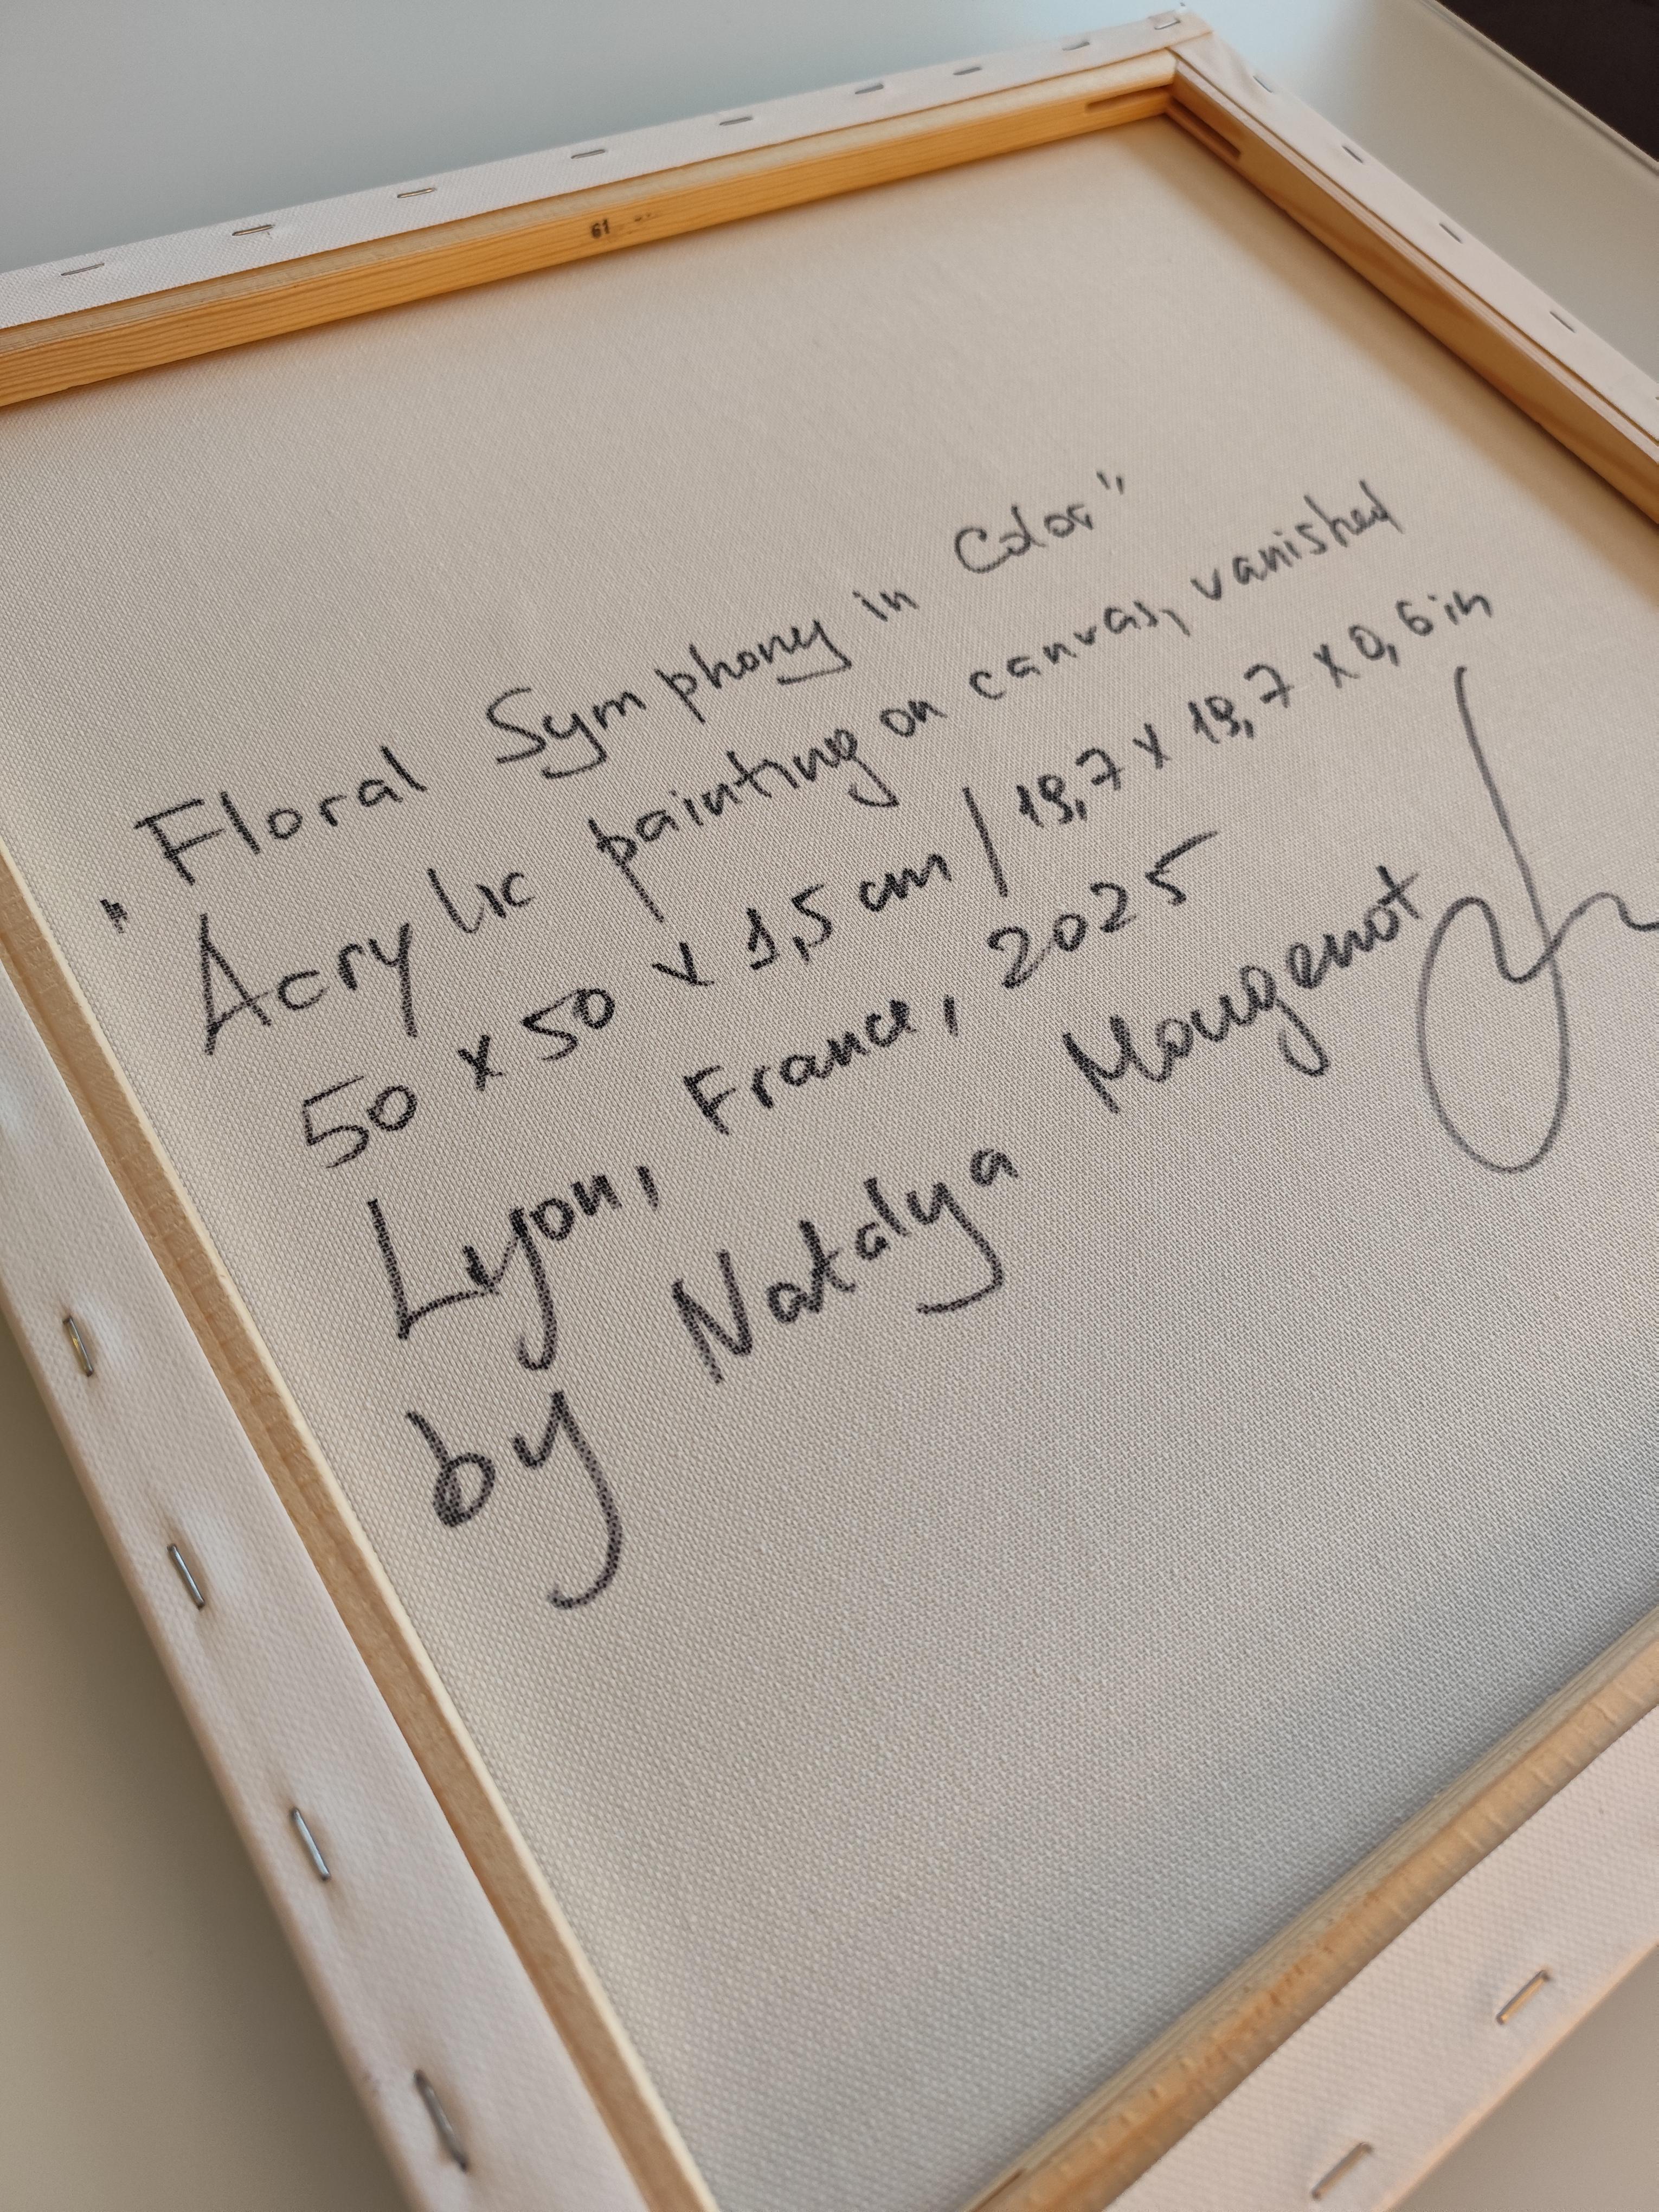 61
"Floral Symphony in Color"
Acrylic painting on canvas, vanished
50 x 50 x 1,5 cm / 19,7 x 19,7 x 0,6 in
Lyon, France, 2025
by Natalya Mougenot